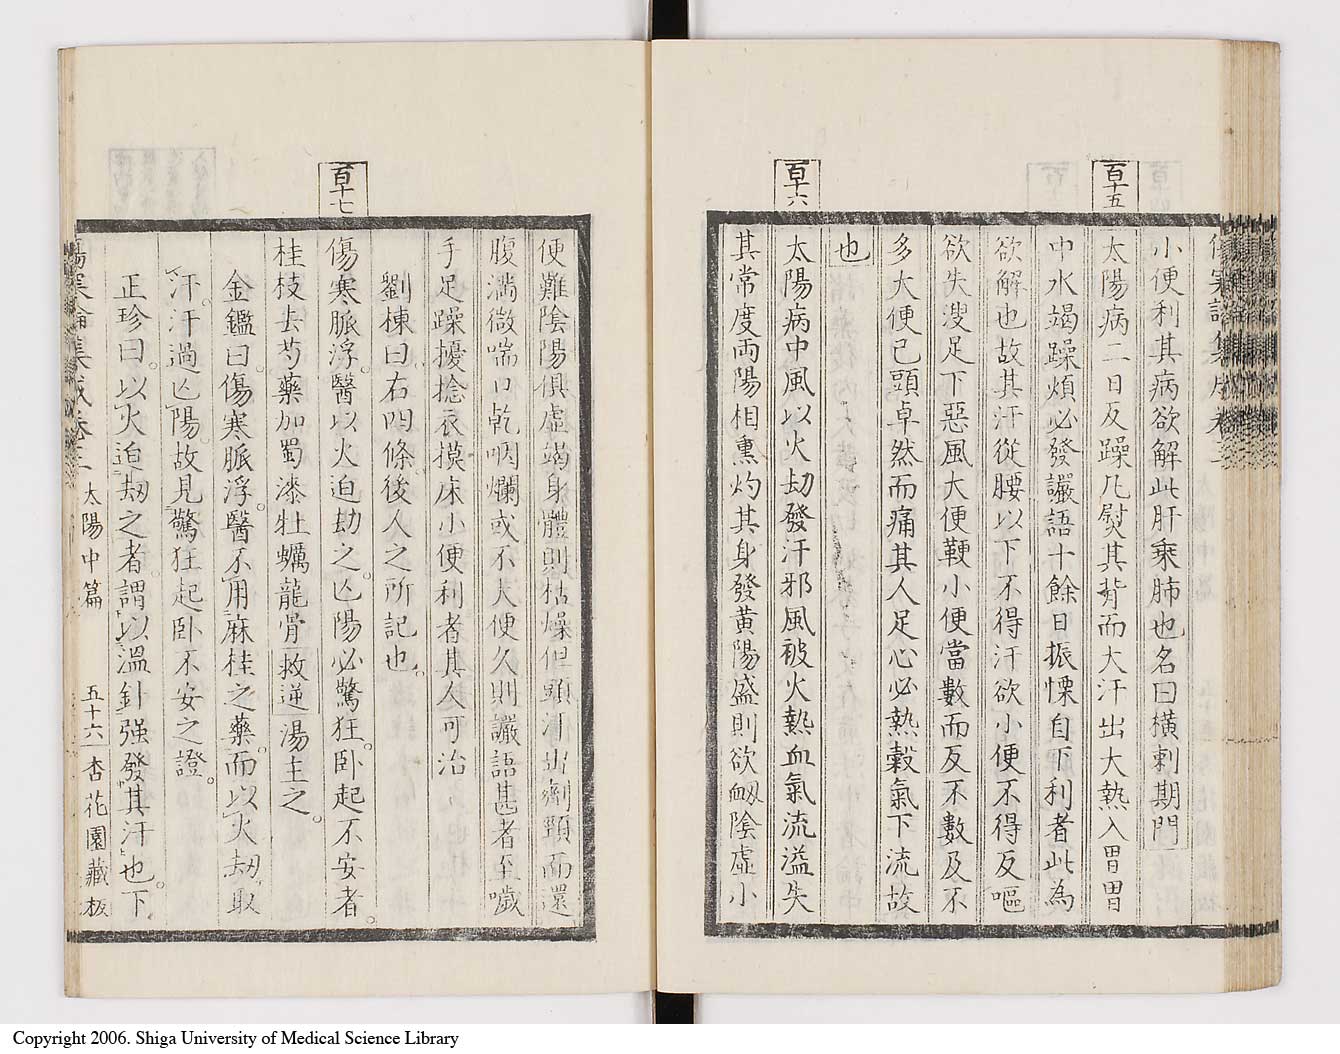 傷寒論集成卷三
小便利其病欲解此肝乘肺也名曰橫刺期門
百十五
太陽病二日反躁凡熨其背而大汗出大熱入胃胃
中水竭躁煩必發讝語十餘日振慄自下利者此為
欲解也故其汗從腰以下不得汗欲小便不得反嘔
欲失溲足下惡風大便鞕小便當數而反不數及不
多大便已頭卓然而痛其人足心必熱穀氣下流故
也
百十六
太陽病中風以火劫發汗邪風被火熱血氣流溢失
其常度両陽相熏灼其身發黃陽盛則欲衂陰虛小
便難陰陽俱虛竭身體則枯燥但頭汗出劑頸而還
腹滿微喘口乾咽爛或不大便久則讝語甚者至噦
手足躁擾捻衣摸床小便利者其人可治
劉棟曰右四條後人之所記也。
百十七
傷寒脈浮。醫以火迫劫之。亡陽必驚狂。臥起不安者。
桂枝去芍藥加蜀漆牡蠣龍骨救逆湯主之。
金鑑曰。傷寒脈浮。醫不用麻桂之藥。而以火劫取
汗。汗過亡陽。故見驚狂起臥不安之證。
正珍曰。以火迫劫之者。謂以溫針强發其汗也。下
傷寒論集成卷三 太陽中篇 五十六 杏花園藏板
Copyright 2006. Shiga University of Medical Science Library